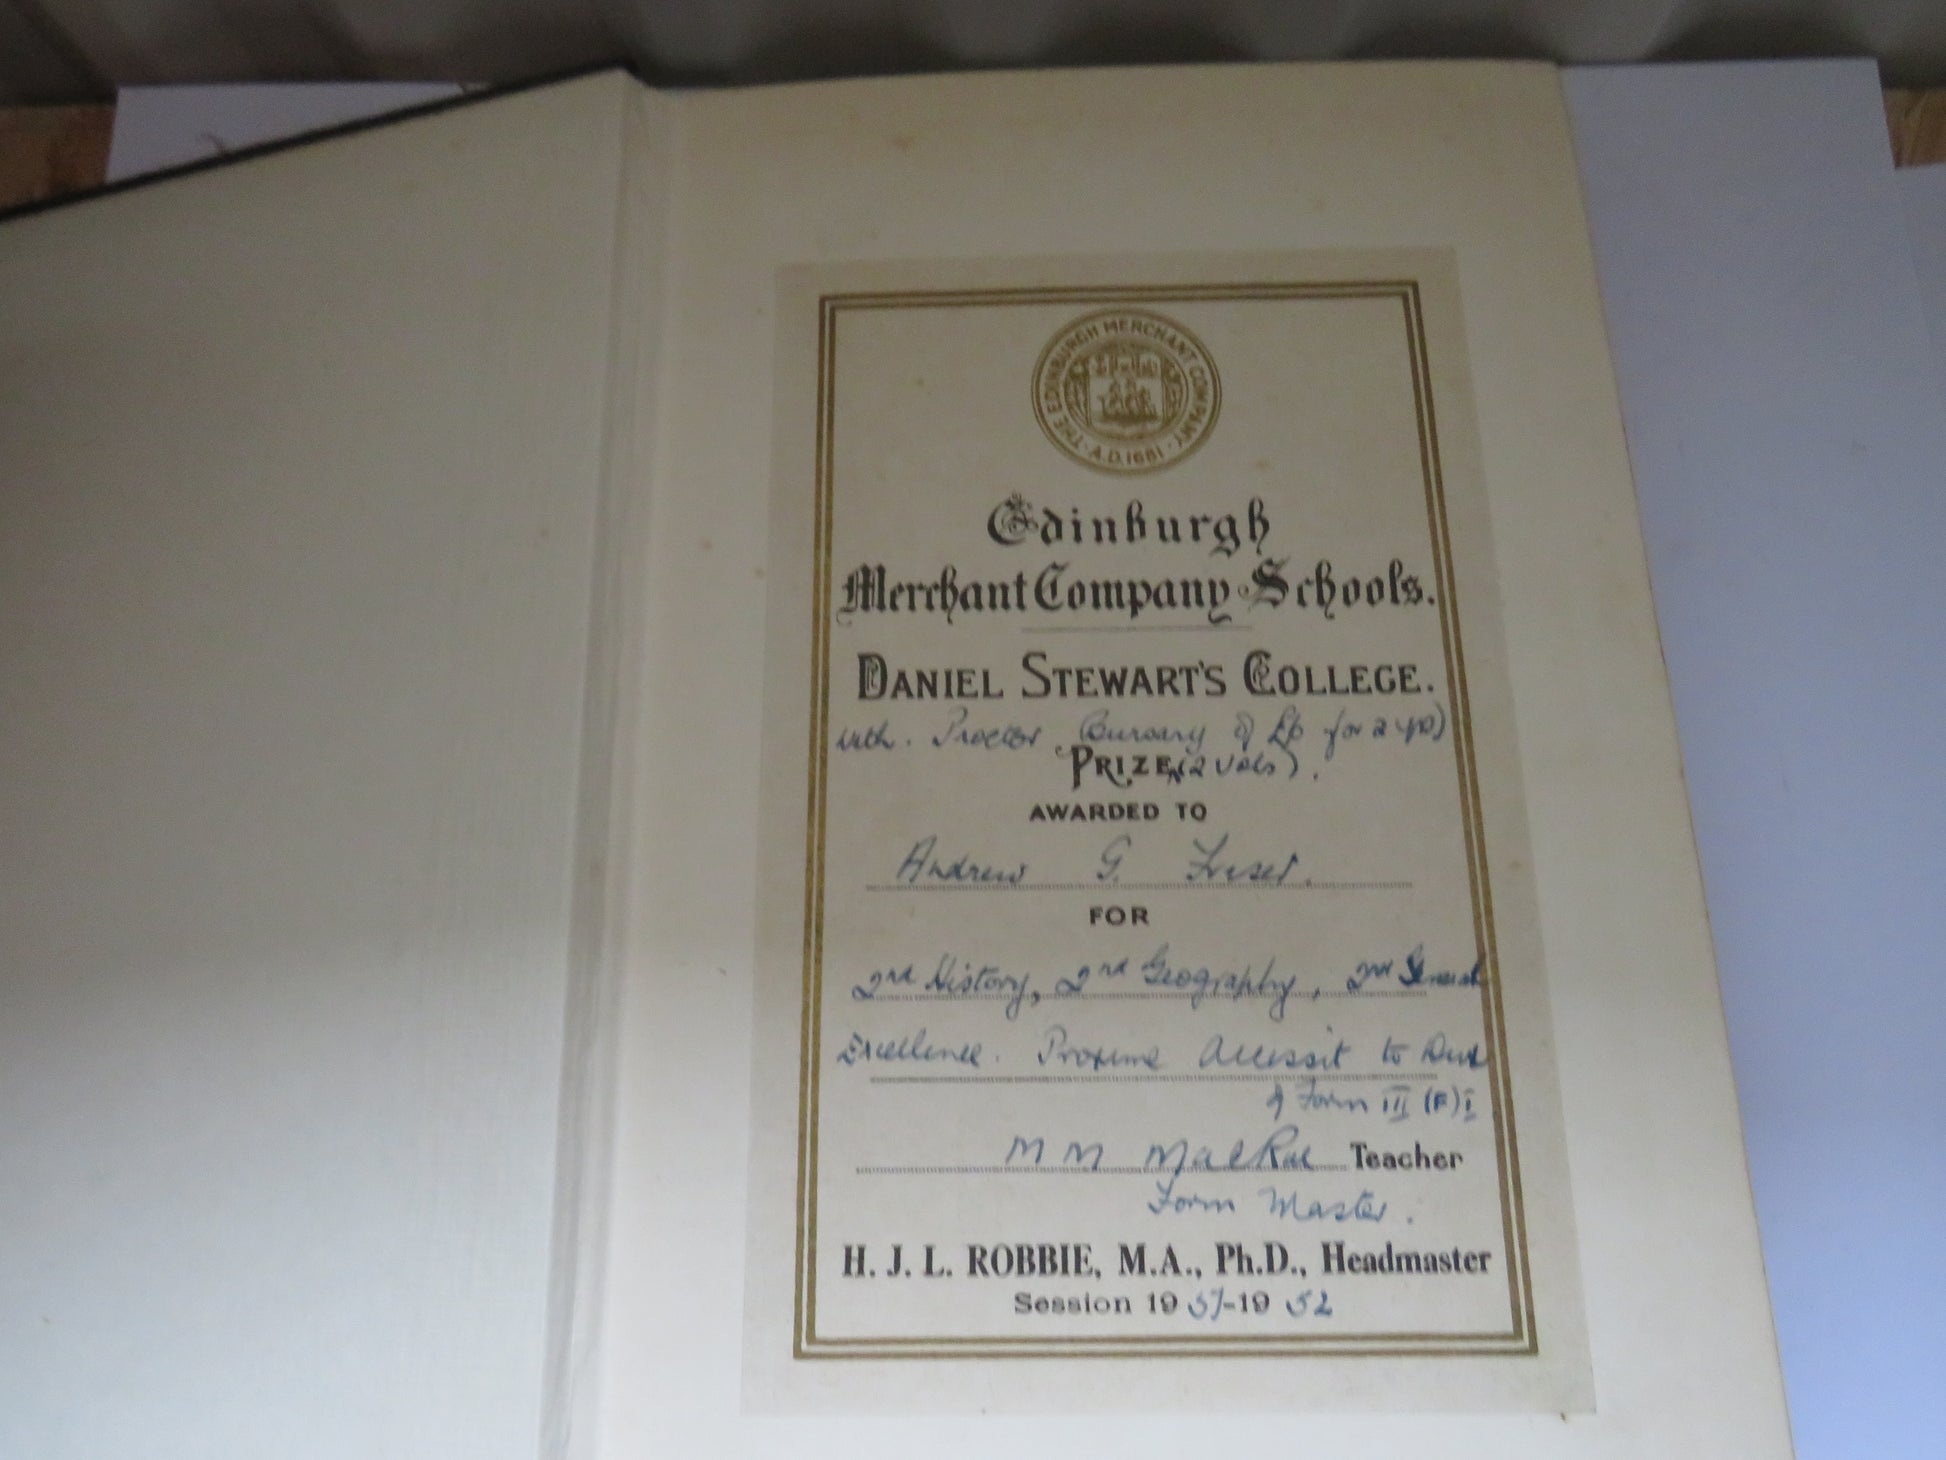 THE EDINBURGH MERCHANT COMPANY · A.D. 1681 ·
Edinburgh
Merchant Company Schools.
DANIEL STEWART'S COLLEGE.
with. Proctor Bursary of £6 for 2 yrs)
PRIZE (2 vols).
AWARDED TO
Andrew G. Fraser.
FOR
2nd History, 2nd Geography, 2nd General
Excellence. Proxime Accessit to Dux
of Form III (F) I
M M MacRae Teacher
Form Master.
H. J. L. ROBBIE, M.A., Ph.D., Headmaster
Session 1951-1952